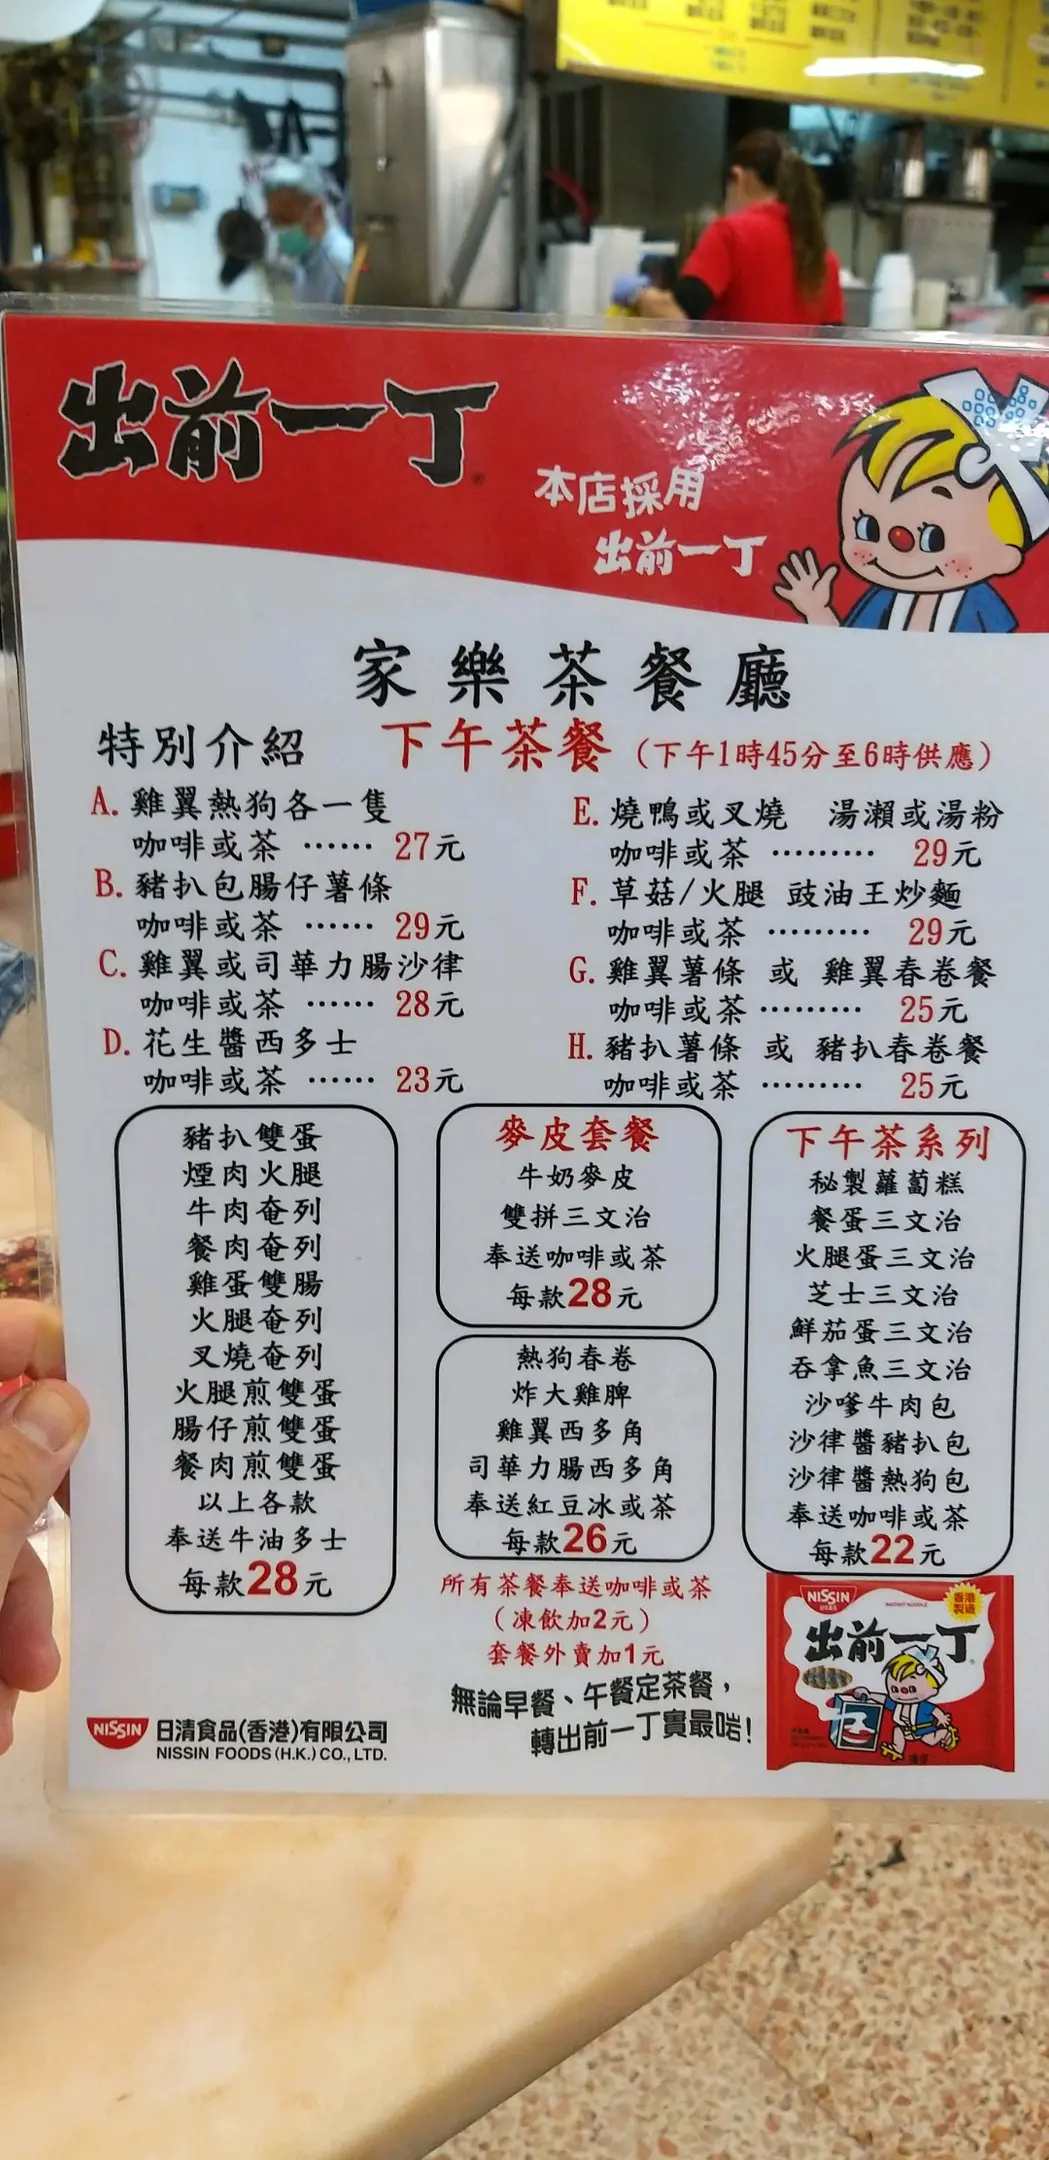 出前一丁
本店採用
出前一丁
家樂茶餐廳
特別介紹 下午茶餐 (下午1時45分至6時供應)
A. 雞翼熱狗各一隻
咖啡或茶 …… 27元
B. 豬扒包腸仔薯條
咖啡或茶 …… 29元
C. 雞翼或司華力腸沙律
咖啡或茶 …… 28元
D. 花生醬西多士
咖啡或茶 …… 23元
E. 燒鴨或叉燒 湯瀨或湯粉
咖啡或茶 ……… 29元
F. 草菇/火腿 豉油王炒麵
咖啡或茶 ……… 29元
G. 雞翼薯條 或 雞翼春卷餐
咖啡或茶 ……… 25元
H. 豬扒薯條 或 豬扒春卷餐
咖啡或茶 ……… 25元
豬扒雙蛋
煙肉火腿
牛肉奄列
餐肉奄列
雞蛋雙腸
火腿奄列
叉燒奄列
火腿煎雙蛋
腸仔煎雙蛋
餐肉煎雙蛋
以上各款
奉送牛油多士
每款28元
麥皮套餐
牛奶麥皮
雙拼三文治
奉送咖啡或茶
每款28元
熱狗春卷
炸大雞脾
雞翼西多角
司華力腸西多角
奉送紅豆冰或茶
每款26元
下午茶系列
秘製蘿蔔糕
餐蛋三文治
火腿蛋三文治
芝士三文治
鮮茄蛋三文治
吞拿魚三文治
沙嗲牛肉包
沙律醬豬扒包
沙律醬熱狗包
奉送咖啡或茶
每款22元
所有茶餐奉送咖啡或茶
(凍飲加2元)
套餐外賣加1元
無論早餐、午餐定茶餐，
轉出前一丁實最啱!
NISSIN
日清食品(香港)有限公司
NISSIN FOODS (H.K.) CO., LTD.
NISSIN
INSTANT NOODLE
香港
製造
出前一丁